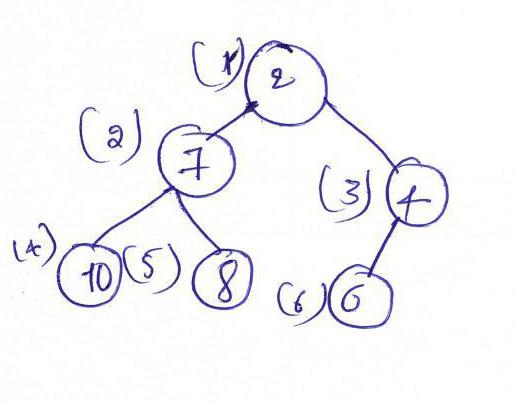 (1) 2
(2) 7
(3) 4
(4) 10 (5) 8
(6) 6